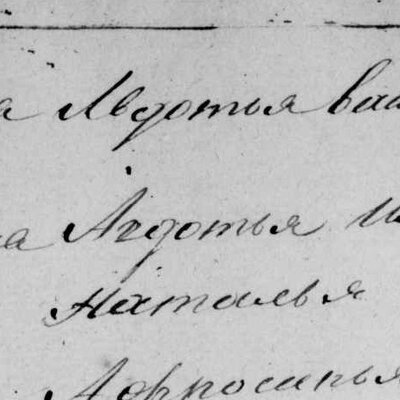 а Авдотья Вас
на Авдотья И
Наталья
Афросинья